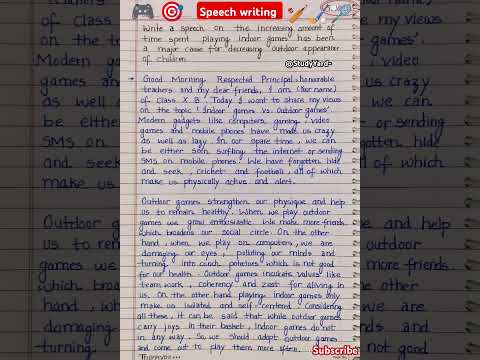 Speech writing
Write a speech on the increasing amount of
time spent playing indoor games has been
a major cause for decreasing outdoor appearance
of children
@StudyYard-
Good Morning. Respected Principal, honorable
teachers and my dear friends, I am (Your name)
of Class X B. Today I want to share my views
on the topic 'Indoor games Vs. Outdoor games'.
Modern gadgets like computers, gaming, video
games and mobile phones have made us crazy
as well as lazy. In our spare time, we can
be either seen surfing the internet or sending
SMS on mobile phones. We have forgotten hide
and seek, cricket and football, all of which
make us physically active and alert.
Outdoor games strengthen our physique and help
us to remain healthy. When we play outdoor
games we grow enthusiastic. We make more friends
which broadens our social circle. On the other
hand, when we play on computers, we are
damaging our eyes, polluting our minds and
turning into couch potatoes which is not good
for our health. Outdoor games inculcate values like
team work, coherency and zest for aliving in
us. On the other hand playing indoor games only
make us isolated and self centered. Considering
all these, it can be said that while outdoor games
carry joys in their basket, indoor games do not
in any way. So we should adopt outdoor games
and come out to play them more often.
Thankyou...
Subscribe